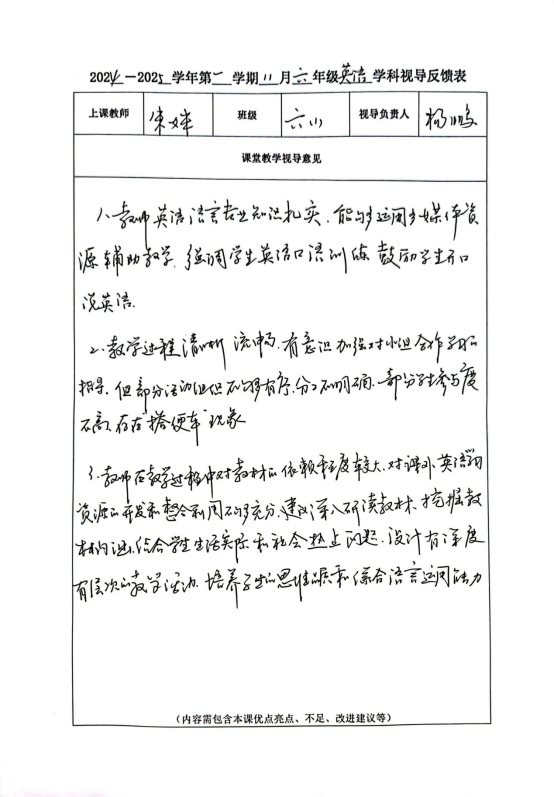 2024—2025 学年第一学期 11 月 六 年级 英语 学科视导反馈表
上课教师 朱 班级 六 视导负责人 杨鹏
课堂教学视导意见
1. 教师英语语言专业知识扎实,能够运用多媒体资
源辅助教学,强调学生英语口语训练,鼓励学生开口
说英语.
2. 教学过程清晰 流畅,有意识加强对小组合作学习的
指导,但部分活动组织不够有序,分工不明确,部分学生参与度
不高,存在“搭便车”现象
3. 教师在教学过程中对教材的依赖程度较大,对课外英语学习
资源的开发和整合利用不够充分,建议深入研读教材,挖掘教
材内涵,结合学生生活实际和社会热点问题,设计有深度
有层次的教学活动,培养学生的思维品质和综合语言运用能力
(内容需包含本课优点亮点、不足、改进建议等)